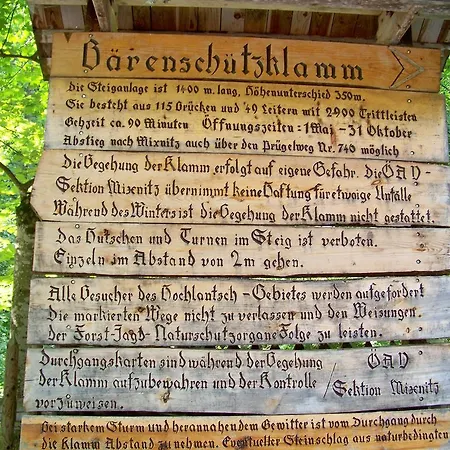 Bärenschützklamm
Die Steiganlage ist 1400 m. lang, Höhenunterschied 350m.
Sie besteht aus 115 Brücken und 49 Leitern mit 2900 Trittleisten
Gehzeit ca. 90 Minuten Öffnungszeiten · 1 Mai – 31 Oktober
Abstieg nach Mixnitz auch über den Prügelweg Nr. 740 möglich
Die Begehung der Klamm erfolgt auf eigene Gefahr. die ÖAV -
Sektion Mixnitz übernimmt keine Haftung für etwaige Unfälle
Während des Winters ist die Begehung der Klamm nicht gestattet.
Das Hutschen und Turnen im Steig ist verboten.
Einzeln im Abstand von 2m gehen.
Alle Besucher des Hochlantsch - Gebietes werden aufgefordert
die markierten Wege nicht zu verlassen und den Weisungen
der Forst-Jagd- Naturschutzorgane Folge zu leisten.
Durchgangskarten sind während der Begehung
der Klamm aufzubewahren und der Kontrolle
vorzuweisen.
ÖAV
/ Sektion Mixnitz
Bei starkem Sturm und herannahendem Gewitter ist vom Durchgang durch
die Klamm Abstand zu nehmen. Eventueller Steinschlag aus naturbedingten